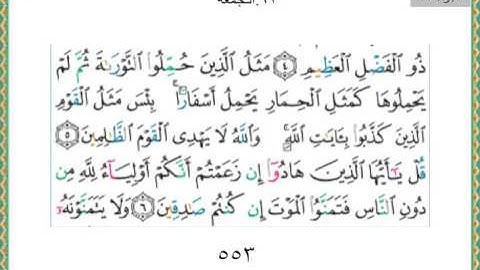 ذُو ٱلْفَضْلِ ٱلْعَظِيمِ ٤ مَثَلُ ٱلَّذِينَ حُمِّلُوا۟ ٱلتَّوْرَىٰةَ ثُمَّ لَمْ
يَحْمِلُوهَا كَمَثَلِ ٱلْحِمَارِ يَحْمِلُ أَسْفَارًۢا ۚ بِئْسَ مَثَلُ ٱلْقَوْمِ
ٱلَّذِينَ كَذَّبُوا۟ بِـَٔايَٰتِ ٱللَّهِ ۚ وَٱللَّهُ لَا يَهْدِى ٱلْقَوْمَ ٱلظَّٰلِمِينَ ٥
قُلْ يَٰٓأَيُّهَا ٱلَّذِينَ هَادُوٓا۟ إِن زَعَمْتُمْ أَنَّكُمْ أَوْلِيَآءُ لِلَّهِ مِن
دُونِ ٱلنَّاسِ فَتَمَنَّوُا۟ ٱلْمَوْتَ إِن كُنتُمْ صَٰدِقِينَ ٦ وَلَا يَتَمَنَّوْنَهُۥٓ
٥٥٣